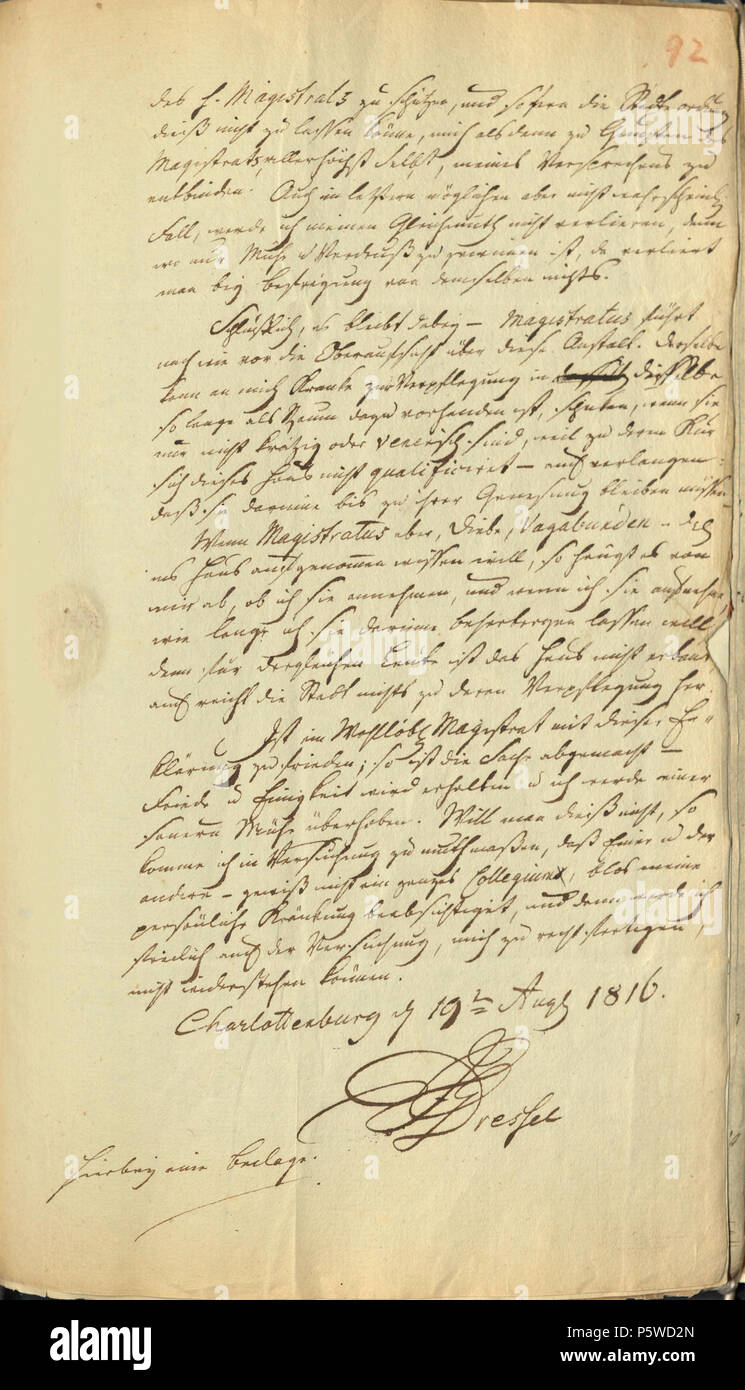 92
des H. Magistrats zu schützen, und sofern die Städteordnung
dieß nicht zu lassen könne, mich alsdenn zu Gunsten des
Magistrats, allerhöchst selbst, meines Versprechens zu
entbinden. Auch im letztern möglichen aber nicht wahrscheinl.
Fall, werde ich meinen Gleichmuth nicht verlieren, denn
wo nur Mühe u Verdruß zu gewinnen ist, da verliert
man bey Befreyung von demselben nichts.
Schlüßlich, es bleibt dabey – Magistratus, führt
nach wie vor die Oberaufsicht über diese Anstalt. Derselbe
kann an mich Kranke zur Verpflegung in dieselbe
so lange als Raum dazu vorhanden ist, schicken, wenn sie
nur nicht krätzig oder venerisch sind, weil zu deren Kur
sich dieses Haus nicht qualificiret – auch verlangen
daß sie darinne bis zu ihrer Genesung bleiben müssen.
Wenn Magistratus aber, Diebe, Vagabunden u dergl
ins Haus aufgenommen wissen will, so hängt es von
mir ab, ob ich sie annehmen, und wenn ich sie aufnehme,
wie lange ich sie darinne beherbergen lassen will
denn für dergleichen Leute ist das Haus nicht erbaut
auch reicht die Stadt nichts zu deren Verpflegung her.
Ist ein Wohllöbl Magistrat mit dieser Er-
klärung zufrieden; so ist die Sache abgemacht –
Friede u Einigkeit wird erhalten u ich werde einer
sauern Mühe überhoben. Will man dieß nicht, so
komme ich in Versuchung zu muthmaßen, daß Einer u der
andere – gewiß nicht ein ganzes Collegium, blos meine
persönliche Kränkung beabsichtiget, und denn werde ich
freilich auch der Versuchung, mich zu rechtfertigen
nicht widerstehen können.
Charlottenburg d 19t Aug 1816.
Dressel
Hierbey eine Beilage.
alamy
Image ID: P5WD2N
www.alamy.com